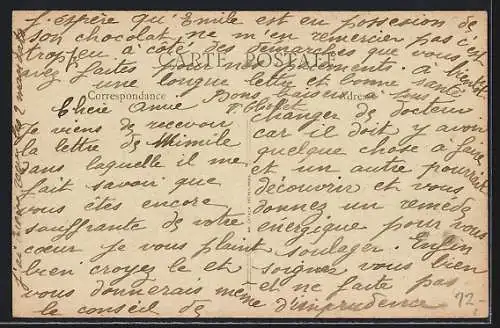 J'espère qu'Emile est en possession de
son chocolat ne m'en remercier pas c'est
trop peu à côté des démarches que vous
avez faites pour nos A bientôt
une longue lettre et bonne santé
Bons baisers à tous
CARTE POSTALE
Correspondance
Adresse
Chère Anne
Je viens de recevoir
la lettre de Mimile
dans laquelle il me
fait savoir que
vous êtes encore
souffrante de votre
cœur je vous plaint
bien croyez le et
vous donnerais même
le conseil de
changer de docteur
car il doit y avoir
quelque chose à faire
et un autre pourrait
découvrir et vous
donner un remède
énergique pour vous
soulager. Enfin
soignez vous bien
et ne faite pas
d'imprudence
12-